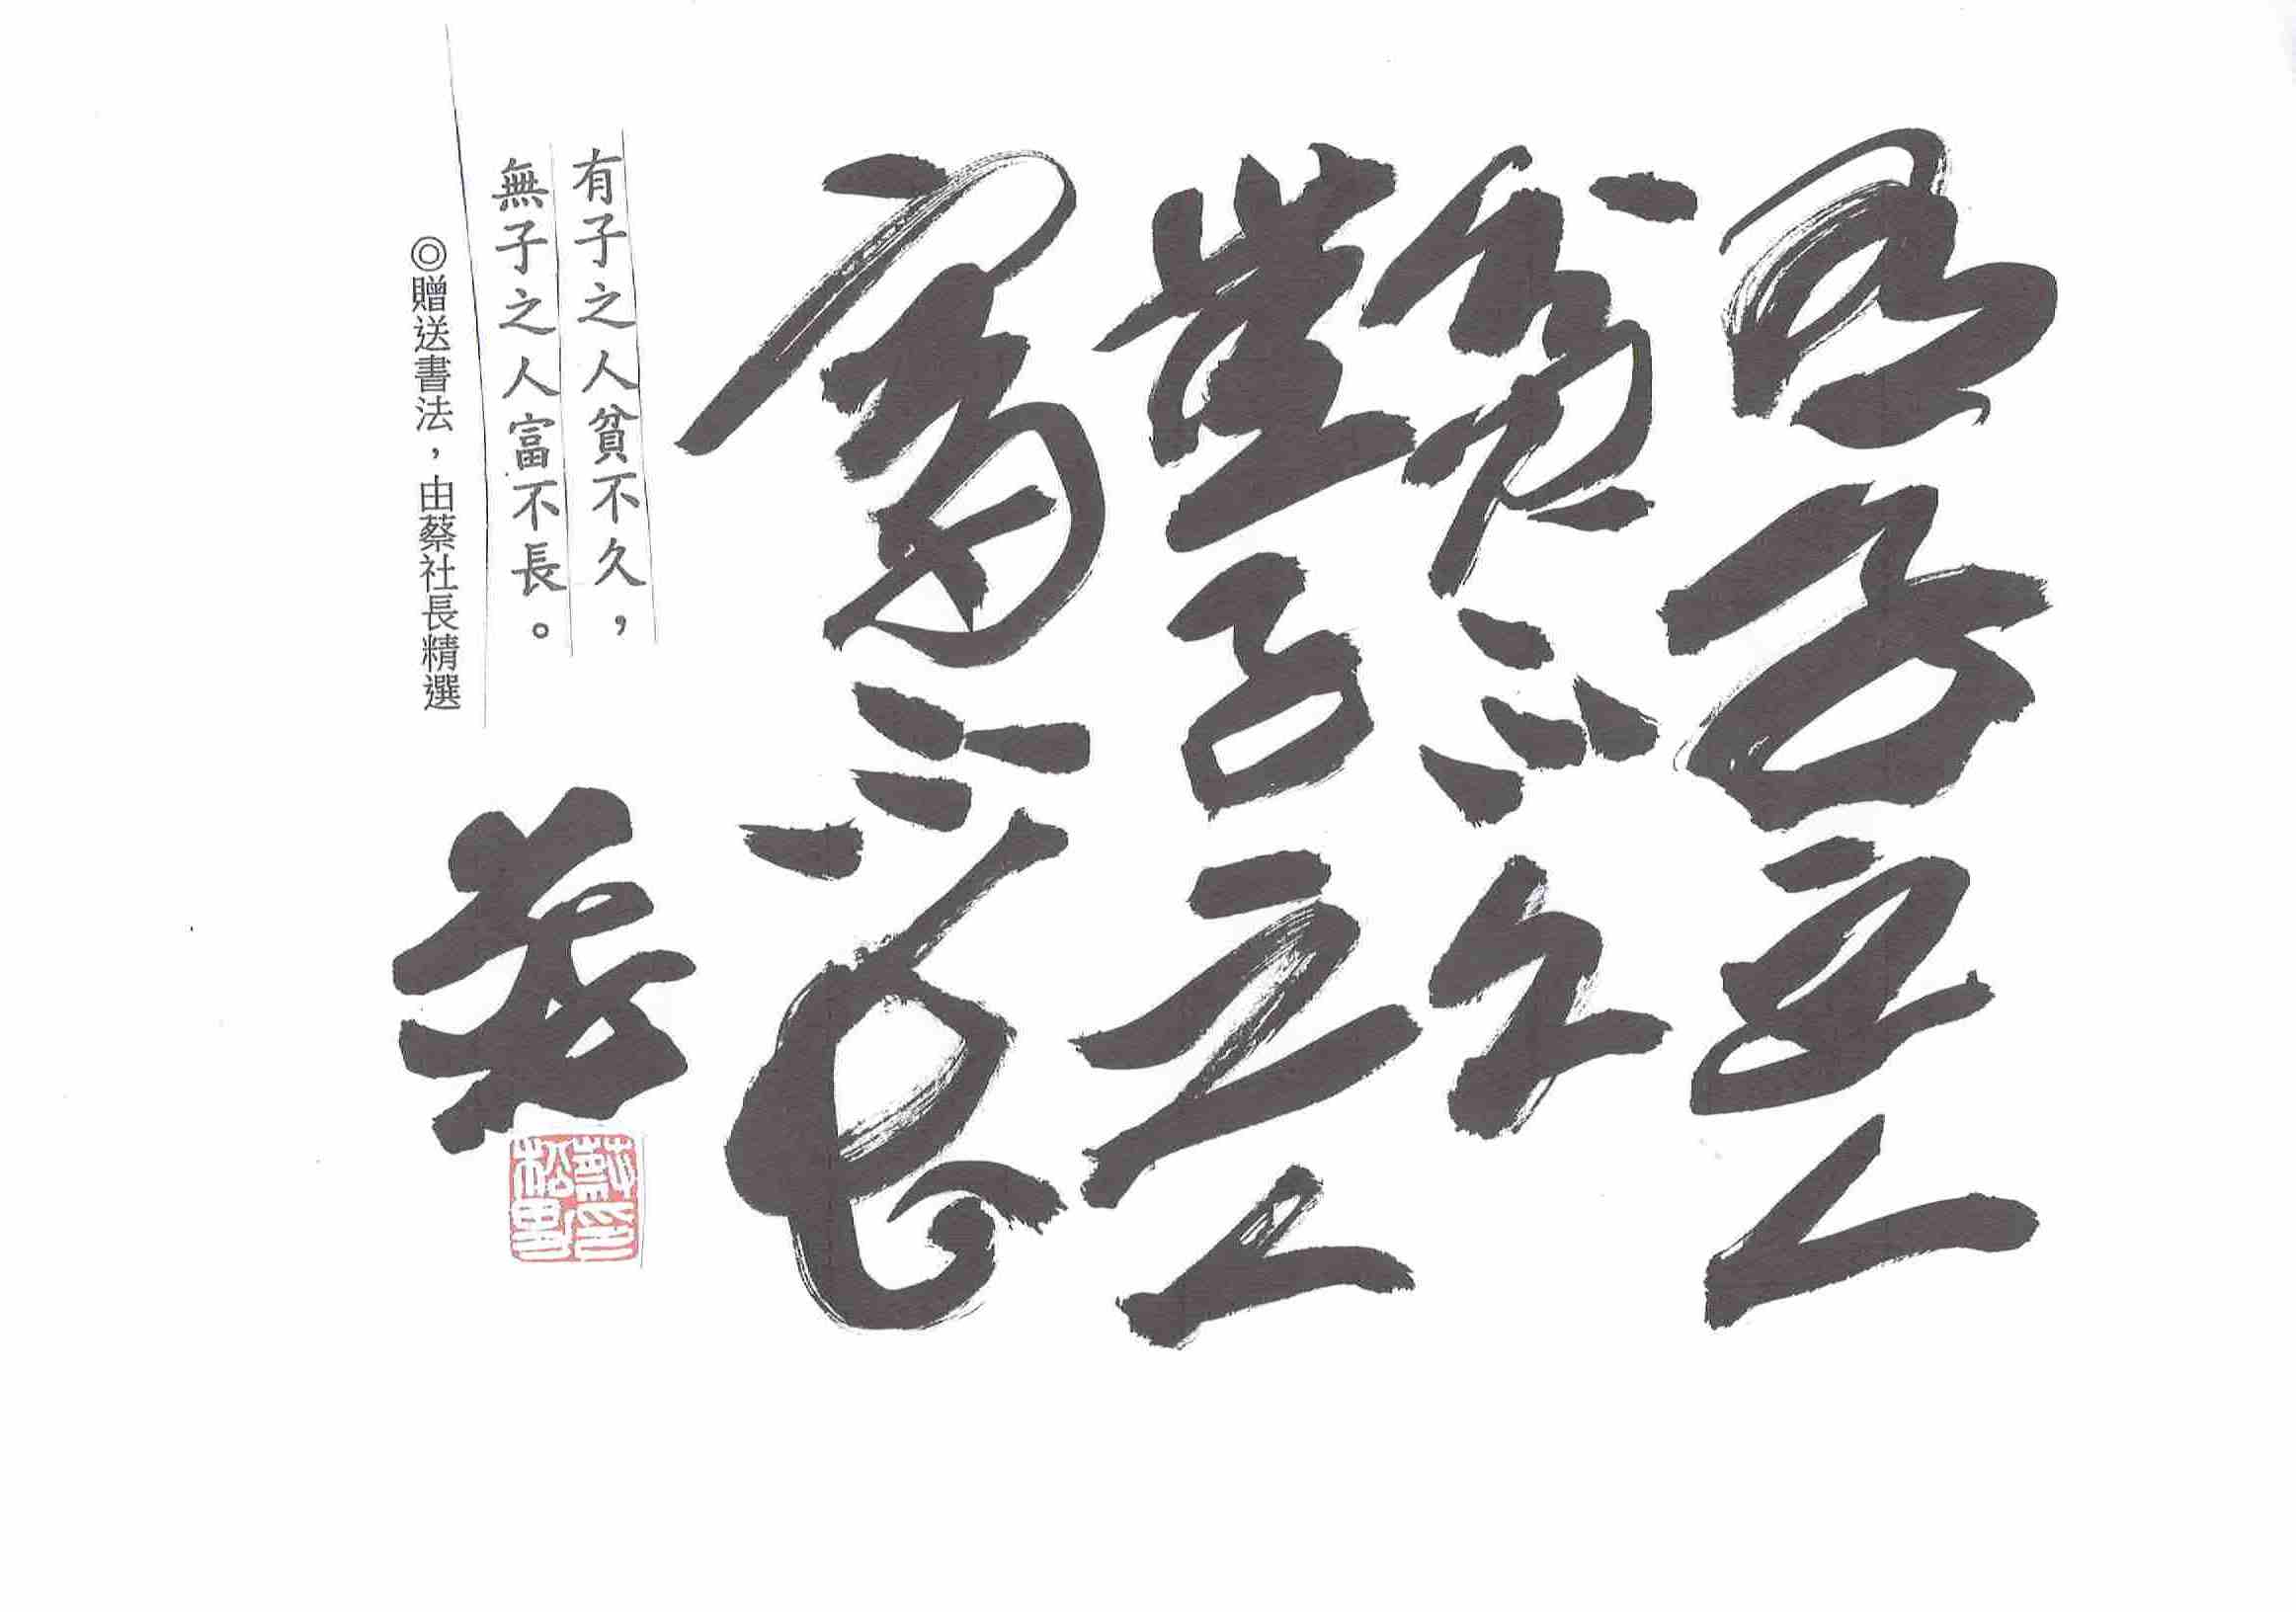 有子之人
貧不久
無子之人
富不長
有子之人貧不久，
無子之人富不長。
◎贈送書法，由蔡社長精選
蔡印
松男